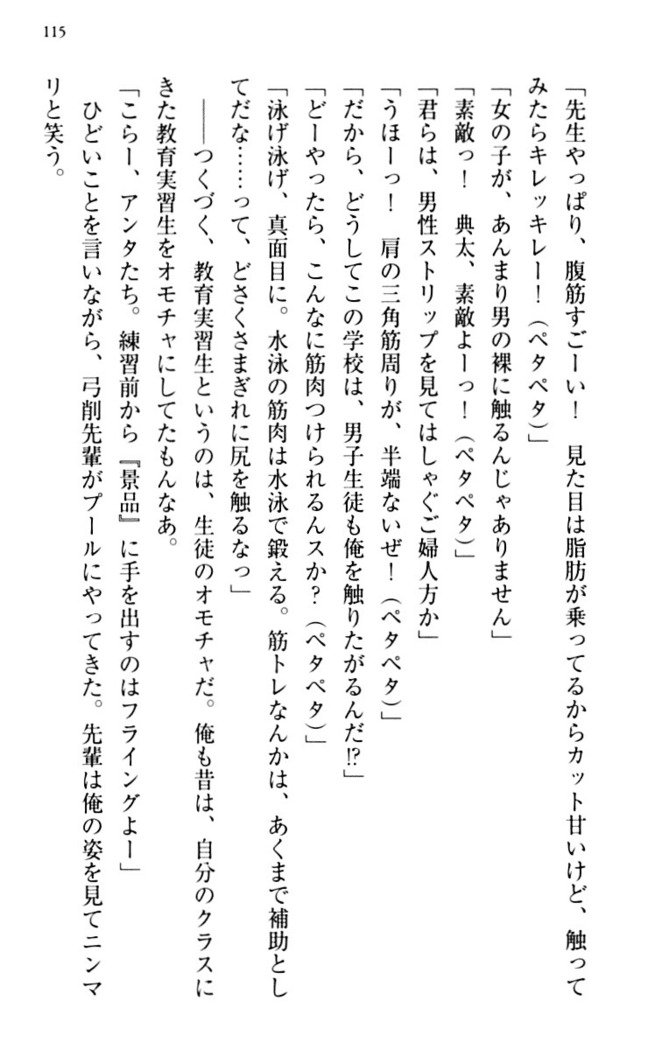 115
「先生やっぱり、腹筋すごーい！　見た目は脂肪が乗ってるからカット甘いけど、触って
みたらキレッキレー！（ペタペタ）」
「女の子が、あんまり男の裸に触るんじゃありません」
「素敵っ！　典太、素敵よーっ！（ペタペタ）」
「君らは、男性ストリップを見てはしゃぐご婦人方か」
「うほーっ！　肩の三角筋周りが、半端ないぜ！（ペタペタ）」
「だから、どうしてこの学校は、男子生徒も俺を触りたがるんだ!?」
「どーやったら、こんなに筋肉つけられるんスか？（ペタペタ）」
「泳げ泳げ、真面目に。水泳の筋肉は水泳で鍛える。筋トレなんかは、あくまで補助とし
てだな……って、どさくさまぎれに尻を触るなっ」
――つくづく、教育実習生というのは、生徒のオモチャだ。俺も昔は、自分のクラスに
きた教育実習生をオモチャにしてたもんなあ。
「こらー、アンタたち。練習前から『景品』に手を出すのはフライングよー」
ひどいことを言いながら、弓削先輩がプールにやってきた。先輩は俺の姿を見てニンマ
リと笑う。